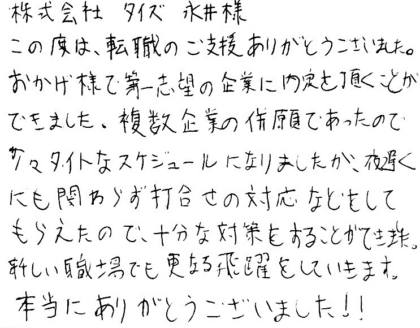 株式会社 タイズ 永井様
この度は、転職のご支援ありがとうございました。
おかげ様で第一志望の企業に内定を頂くことが
できました、複数企業の併願であったので
少々タイトなスケジュールになりましたが、夜遅く
にも関わらず打合せの対応などをして
もらえたので、十分な対策をすることができました。
新しい職場でも更なる飛躍をしていきます。
本当にありがとうございました!!